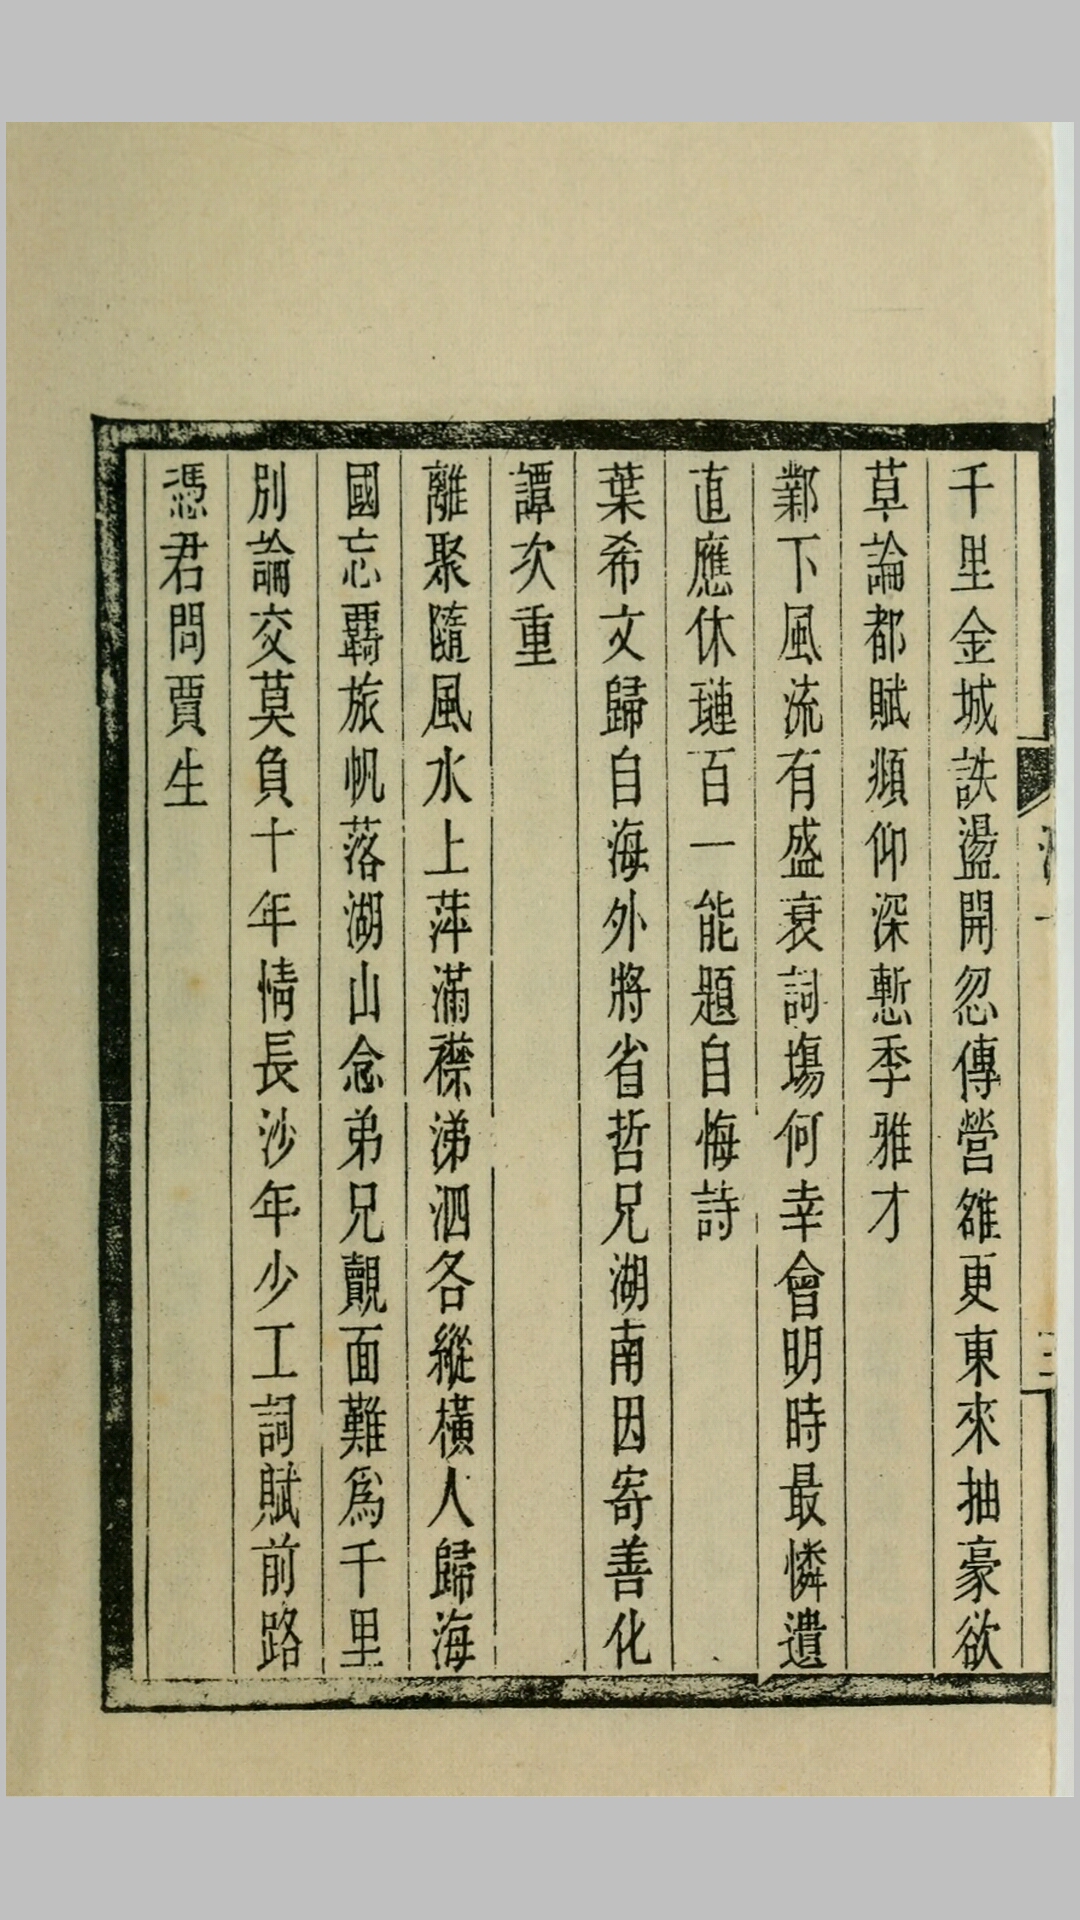 千里金城詄盪開忽傳營雒更東來抽豪欲
草論都賦頫仰深慙季雅才
鄴下風流有盛衰詞塲何幸會明時最憐遺
直應休璉百一能題自悔詩
葉希文歸自海外將省哲兄湖南因寄善化
譚次重
離聚隨風水上萍滿襟涕泗各縱橫人歸海
國忘覊旅帆落湖山念弟兄覿面難爲千里
別論交莫負十年情長沙年少工詞賦前路
憑君問賈生